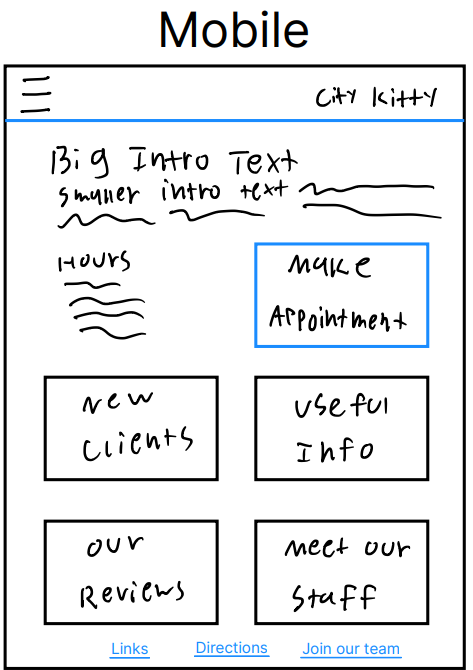 Mobile
City Kitty
Big Intro Text
smaller intro text
Hours
Make
Appointment
New
Clients
Useful
Info
Our
Reviews
Meet our
Staff
Links
Directions
Join our team